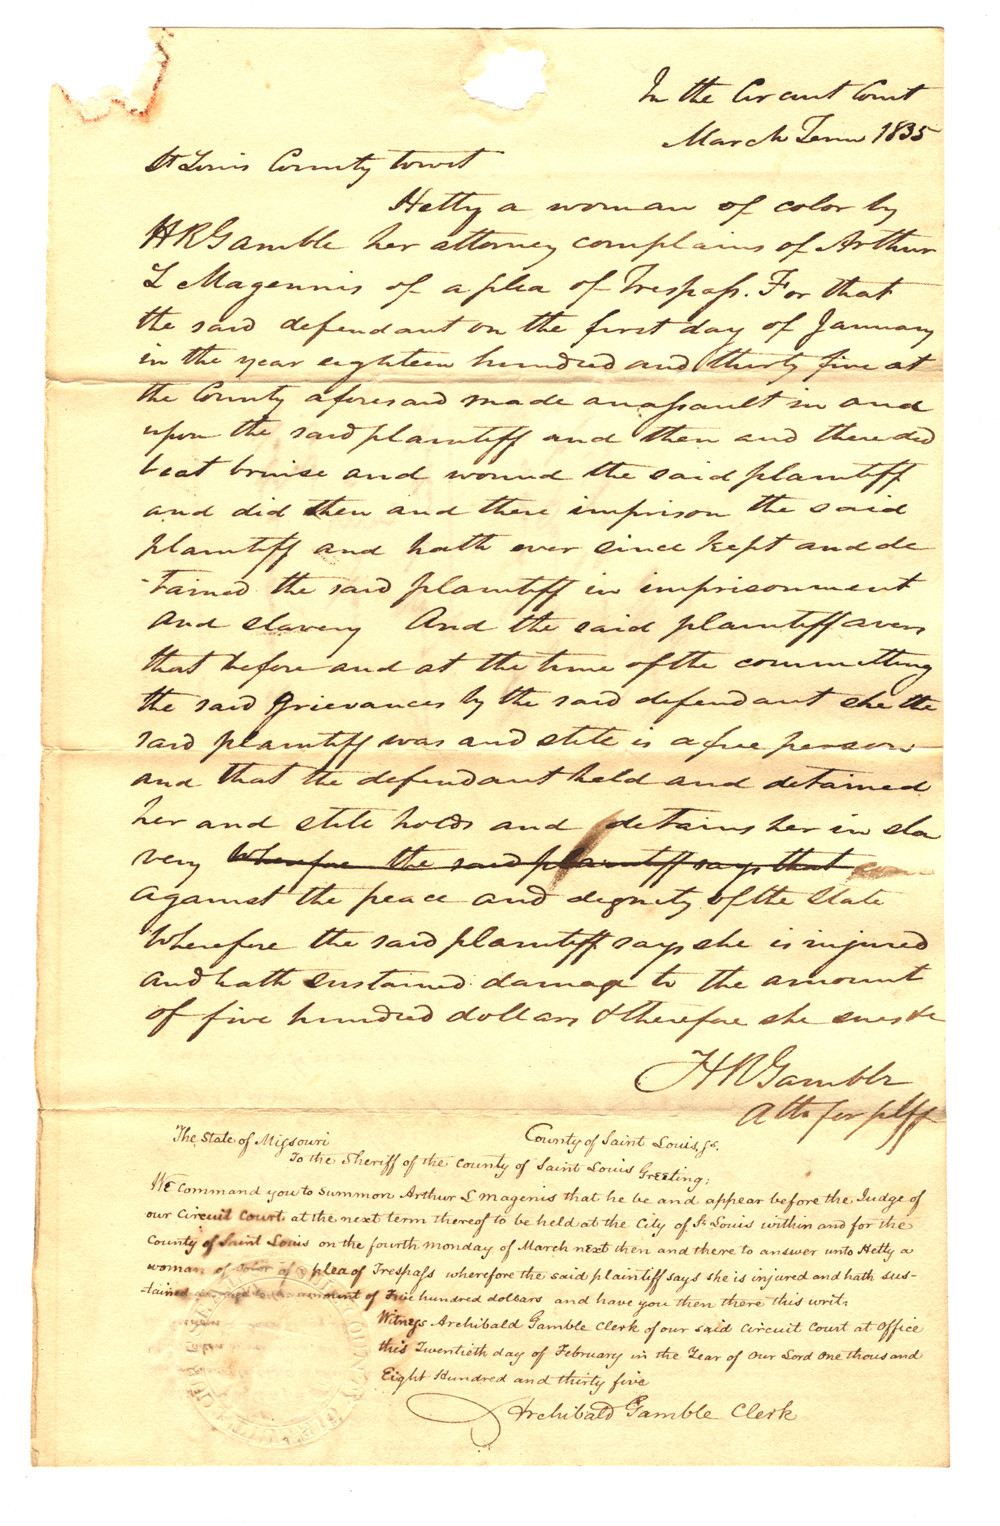 In the Circuit Court
March Term 1835
St Louis County towit
Hetty a woman of color by
H R Gamble her attorney complains of Arthur
L Magennis of a plea of Trespass. For that
the said defendant on the first day of January
in the year eighteen hundred and thirty five at
the County aforesaid made an assault in and
upon the said plaintiff and then and there did
beat bruise and wound the said plaintiff
and did then and there imprison the said
plaintiff and hath ever since kept and de
-tained the said plaintiff in imprisonment
and slavery And the said plaintiff avers
that before and at the time of the committing
the said grievances by the said defendant she the
said plaintiff was and still is a free person
and that the defendant held and detained
her and still holds and detains her in sla
very Wherefore the said plaintiff says that
against the peace and dignity of the State
Wherefore the said plaintiff says she is injured
and hath sustained damage to the amount
of five hundred dollars & therefore she sues &c
H R Gamble
Atto for plff
The State of Missouri County of Saint Louis, ss.
To the Sheriff of the County of Saint Louis Greeting;
We command you to summon Arthur L Magenis that he be and appear before the Judge of
our Circuit Court at the next term thereof to be held at the City of St Louis within and for the
County of Saint Louis on the fourth monday of March next then and there to answer unto Hetty a
woman of Color of a plea of Trespass wherefore the said plaintiff says she is injured and hath sus-
-tained damage to the amount of Five hundred dollars and have you then there this writ.
Witness Archibald Gamble Clerk of our said Circuit Court at office
this Twentieth day of February in the Year of our Lord one thousand
Eight Hundred and thirty five
Archibald Gamble Clerk